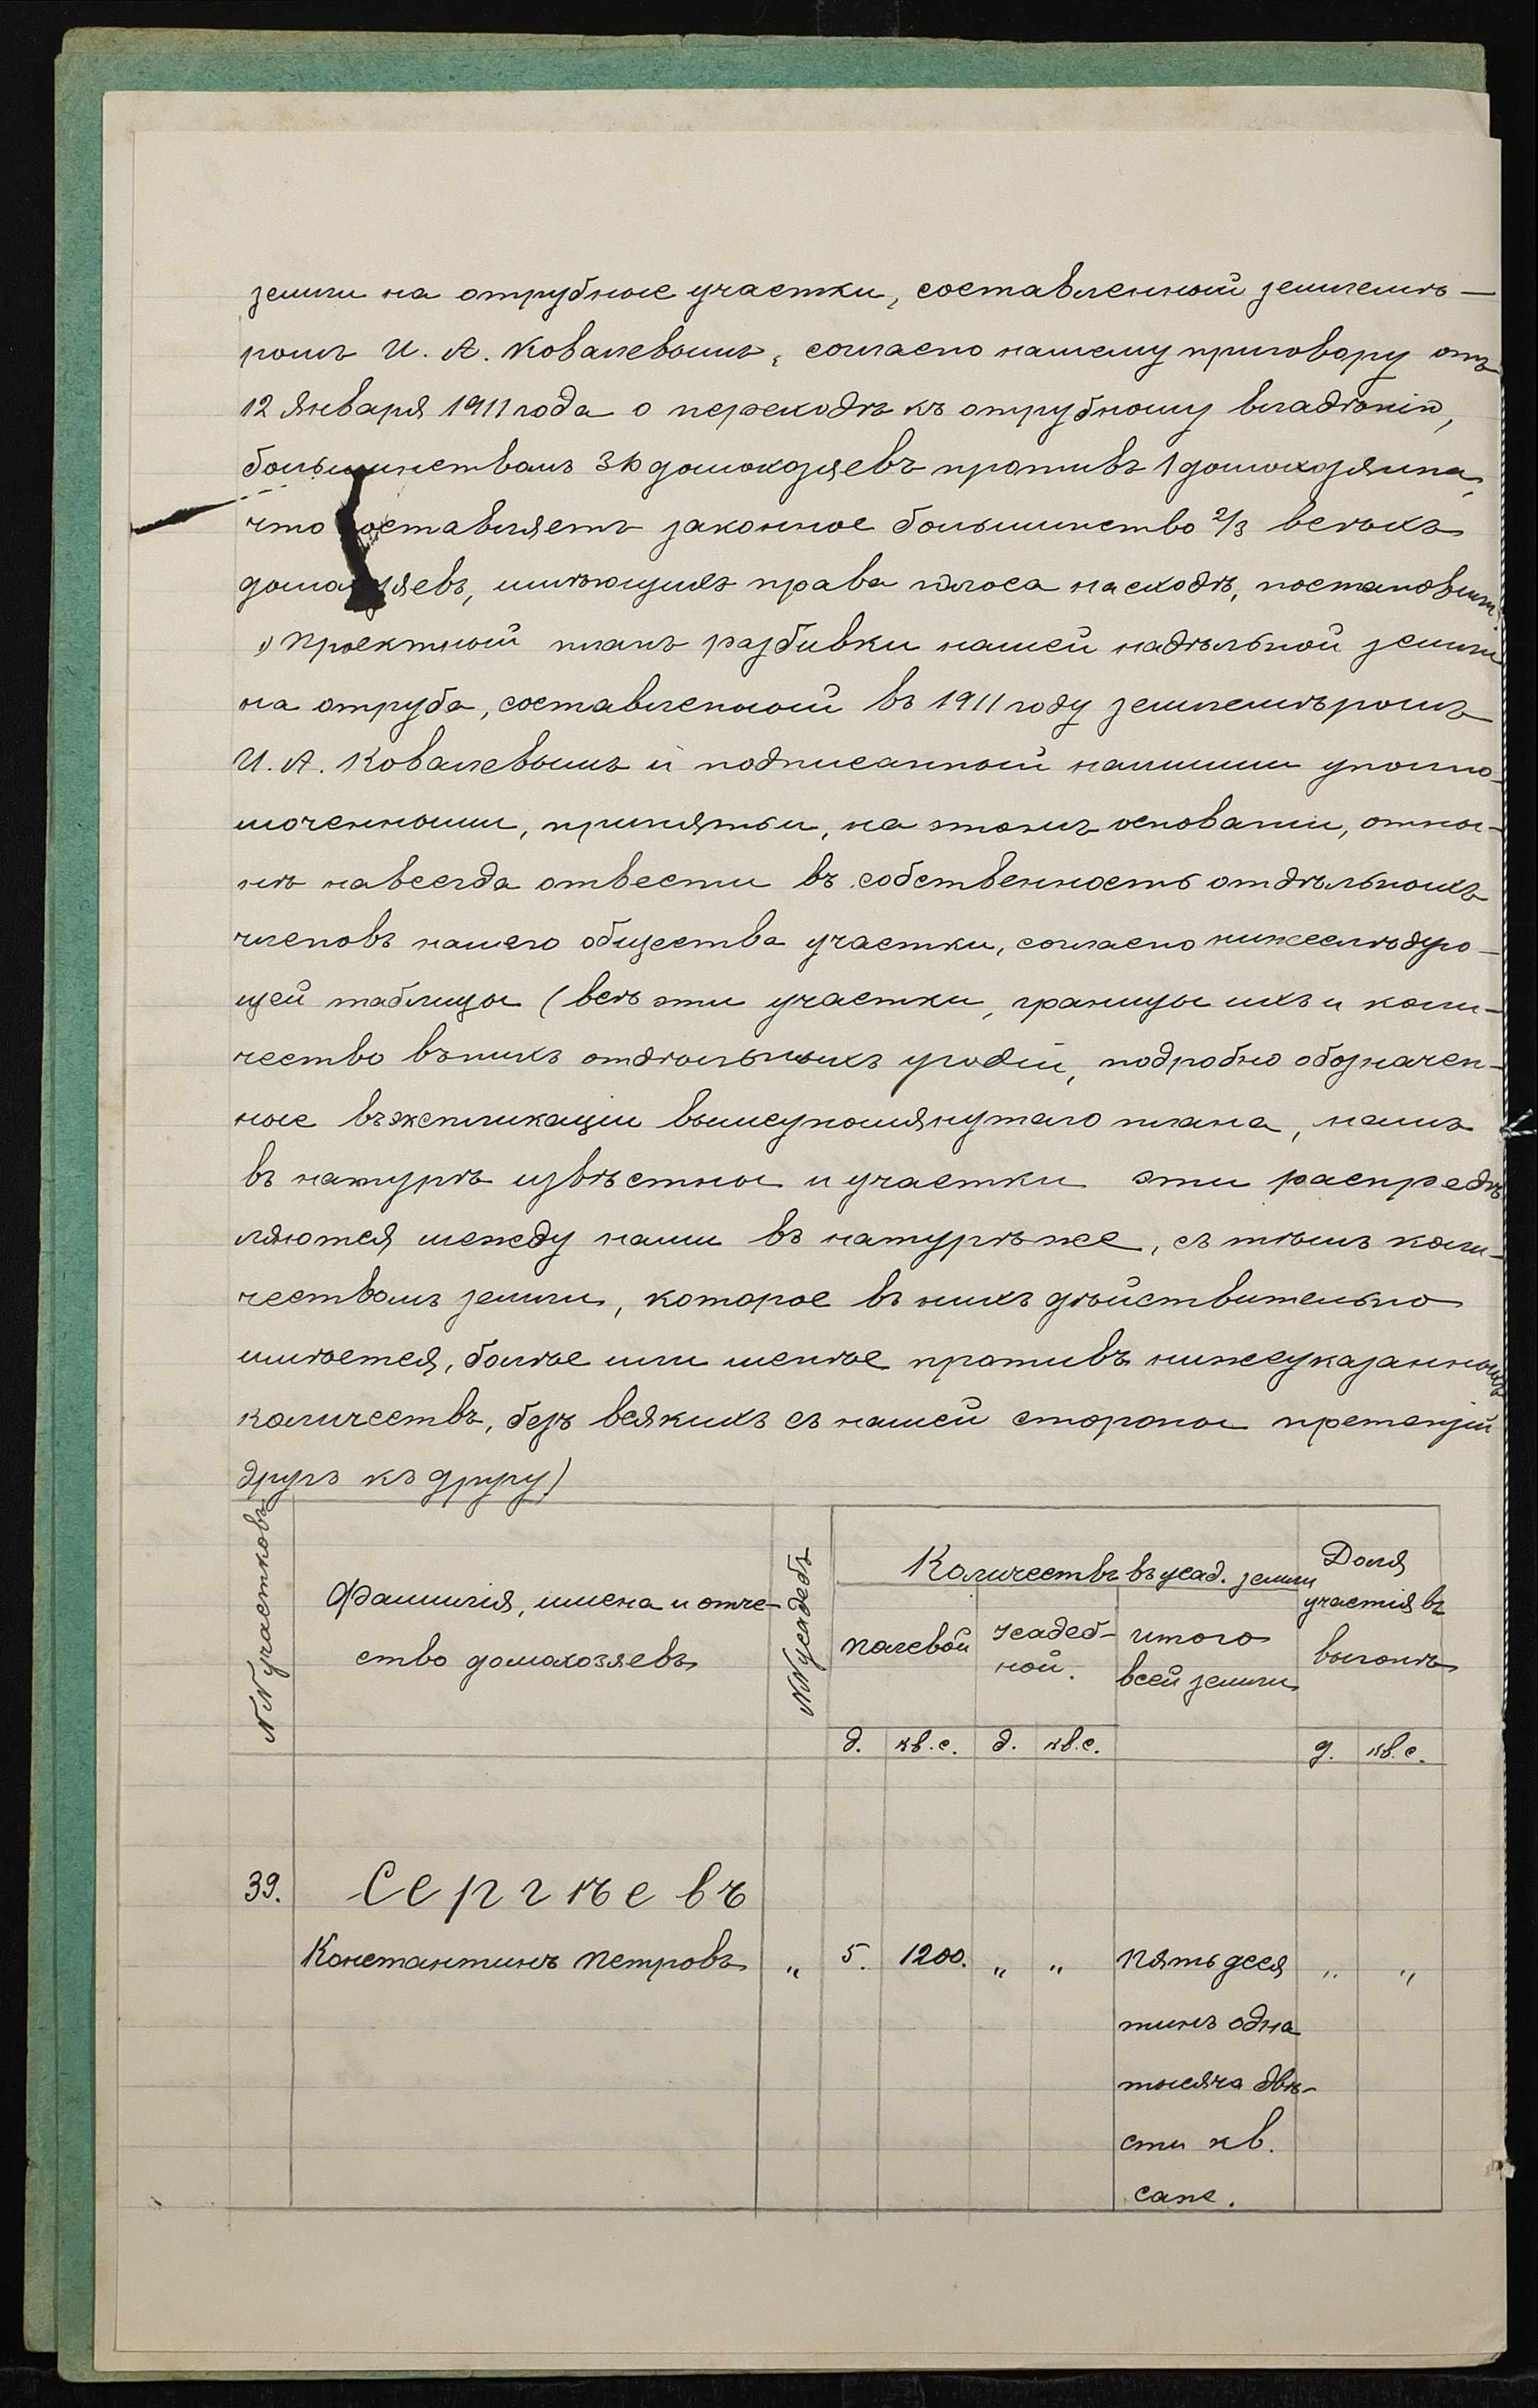 земли на отрубные участки, составленный землемѣ—
ромъ И. А. Ковалевымъ, согласно нашему приговору отъ
12 Января 1911 года о переходѣ къ отрубному владѣнію,
большинствомъ домохозяевъ противъ 1 домохозяина,
что составляетъ законное большинство 2/3 всѣхъ
домохозяевъ, имѣющихъ права голоса на сходѣ, постановили:
1) Проектный планъ разбивки нашей надѣльной земли
на отруба, составленный въ 1911 году землемѣромъ
И. А. Ковалевымъ и подписанный нашими уполно-
моченными, принять и, на этомъ основаніи, отны-
нѣ навсегда отвести въ собственность отдѣльныхъ
членовъ нашего общества участки, согласно нижеслѣдую-
щей таблицы (всѣ эти участки, границы ихъ и коли-
чество въ нихъ отдѣльныхъ угодій, подробно обозначен-
ные въ экспликаціи вышеупомянутаго плана, намъ
въ натурѣ извѣстны и участки эти распредѣ
ляются между нами въ натурѣ же, съ тѣмъ коли-
чествомъ земли, которое въ нихъ дѣйствительно
имѣется, болѣе или менѣе противъ нижеуказанныхъ
количествъ, безъ всякихъ съ нашей стороны претензій
другъ къ другу)
NN участковъ
Фамилія, имена и отче-
ство домохозяевъ
NN усадебъ
Количествъ въ усад. земли
полевой
усадеб-
ной.
итого
всей земли
Доля
участія въ
выгонѣ
д. кв.с. д. кв.с. д. кв.с.
39. Сергѣевъ
Константинъ Петровъ „ 5. 1200. „ „ Пять деся „ „
тинъ одна
тысяча двѣ-
сти кв.
саж.